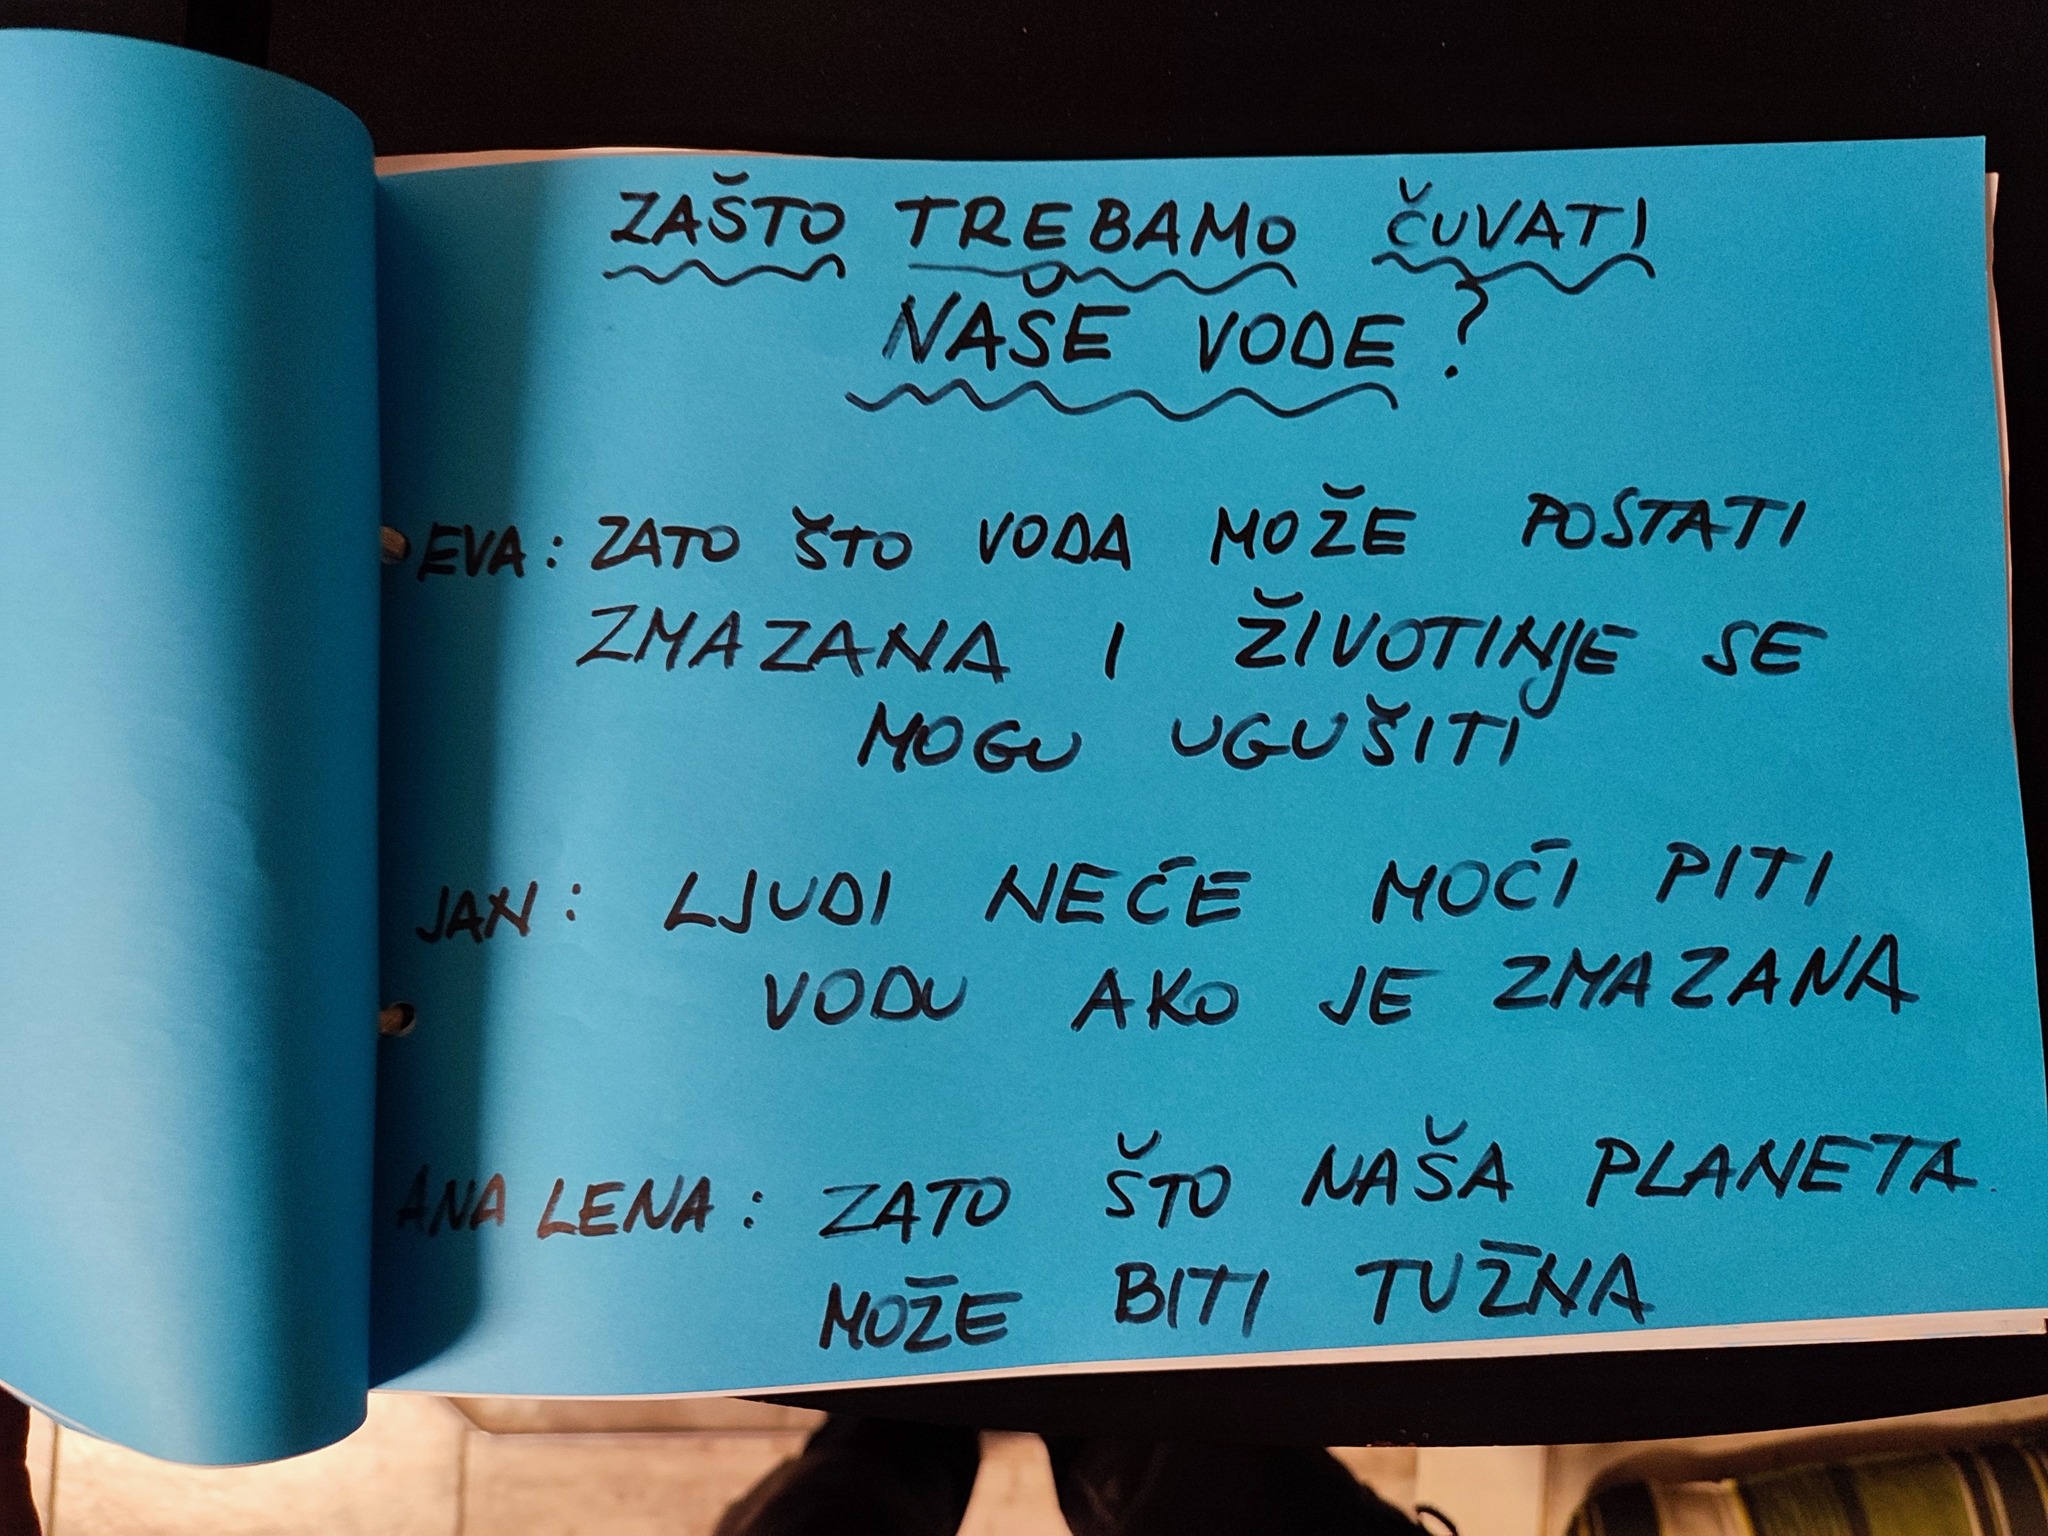 ZAŠTO TREBAMO ČUVATI
NAŠE VODE?
EVA: ZATO ŠTO VODA MOŽE POSTATI
ZMAZANA I ŽIVOTINJE SE
MOGU UGUŠITI
JAN: LJUDI NEĆE MOĆI PITI
VODU AKO JE ZMAZANA
ANA LENA: ZATO ŠTO NAŠA PLANETA
MOŽE BITI TUŽNA